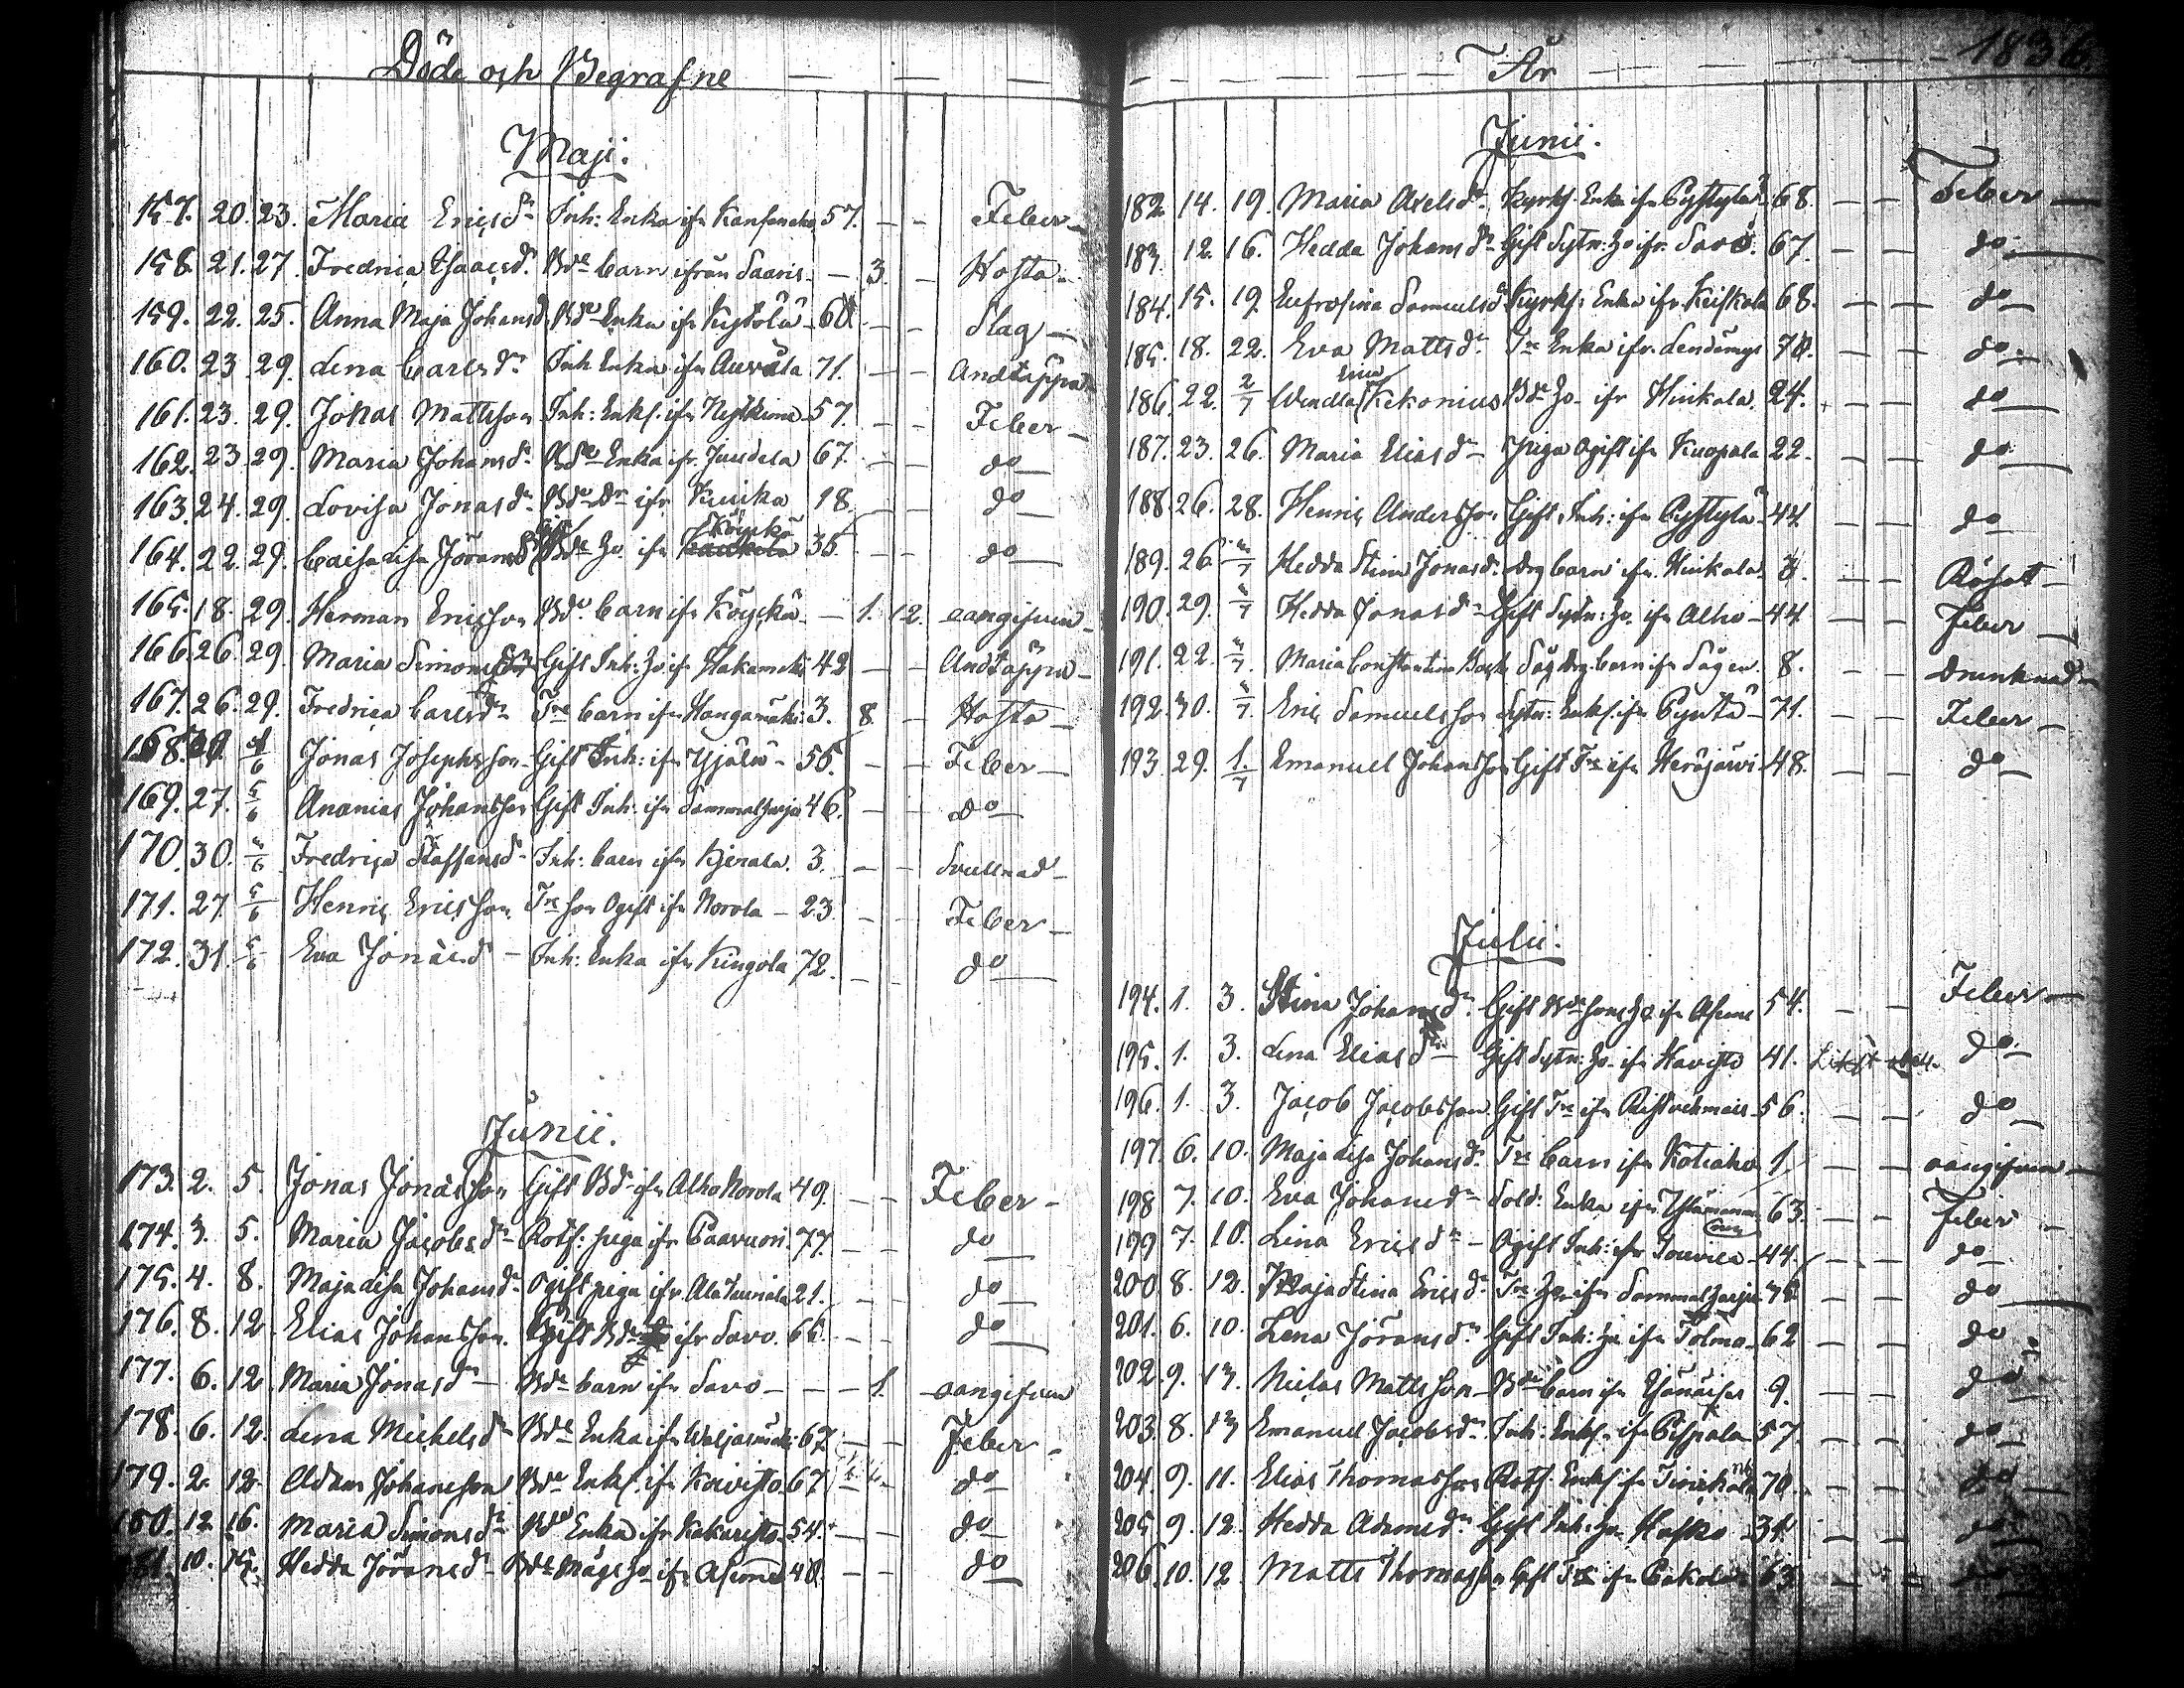 Döde och Begrafne
Maji.
157. 20. 23. Maria Ericsdr Inh: Enka ifr 57. — — Feber
158. 21. 27. Fredrica Isaacsdr Bde barn ifrån Saaris — 3. — Hosta
159. 22. 25. Anna Maja Johansd Bde Enka ifr — — Slag
160. 23. 29. Lena Carlsdr Inh Enka ifr Auvåla 71. — — Andtäppa
161. 23. 29. Johas Mattsson Inh: Enkl. ifr 57. — — Feber
162. 23. 29. Maria Johansdr Bde Enka ifr Jundila 67. — — do
163. 24. 29. Lovisa Jonasdr Bde Dr ifr Kuuka 18. — — do
164. 22. 29. Caisa Lisa Göransdr Bde Ho. ifr Köyckä 35. — — do
165. 18. 29. Herman Ericsson Bde barn ifr Köyckä — 1. 12. oangifven
166. 26. 29. Maria Simonsdr Gift Inh: Ho ifr Hakamäki 42 — — Andtäppa
167. 26. 29. Fredrica Carlsdr Tre barn ifr Hangasmäki 3. 8 — Hosta
168. Jonas Josephsson Gift Inh: ifr 55. — — Feber
169. 27. 5/6 Ananias Johansson Gift Inh: ifr Sammalharju 46. — — do
170. 30. Fredrica Staffansdr Inh: barn ifr Kjerala. 3. — — Svullnad
171. 27. 5/6 Henric Ericsson Tre son Ogift ifr Norola — 23. — — Feber
172. 31. 5/6 Eva Jonasd — Inh: Enka ifr Kingola 72. — — do
Junii.
173. 2. 5. Jonas Jonasson Gift Bde ifr Alho Norola 49. — — Feber
174. 3. 5. Maria Jacobsdr Rotf: piga ifr Paavuori 77. — — do
175. 4. 8. Maja Lisa Johansdr Ogift piga ifr Ala Junnila 21. — — do
176. 8. 12. Elias Johansson. Gift Bde ifr Savo. 66. — — do
177. 6. 12. Maria Jonasdr — Bde barn ifr Savo — — — 1. oangifven
178. 6. 12. Lena Michelsdr Bde Enka ifr Waljasmäki 67 — — Feber
179. 2. 12. Adam Johansson Bde Enkl. ifr Koivisto 67 do
180. 12. 16. Maria Simonsdr Bde Enka ifr 54. — — do
181. 10. 15. Hedda Göransdr Bde Mågs Ho ifr 40. — — do
År 1836.
Junii.
182. 14. 19. Maria Axelsdr Kyrkf. Enka ifr Pystylä 68. — — Feber
183. 12. 16. Hedda Johansdr Gift Sytn: Ho ifr Savo. 67. — — do
184. 15. 19. Eufrosina Samuelsdr Kyrkf: Enka ifr Keiskala 68. — — do
185. 18. 22. Eva Mattsdr Tre Enka ifr — — do
186. 22. 2/7 Wendla Kekonius Bde Ho ifr Hinkala. 24. — — do
187. 23. 26. Maria Eliasdr — piga Ogift ifr Kuopala 22. — — do
188. 26. 28. Henric Andersson Gift Inh: ifr Pystylä 44 — — do
189. 26. Hedda Stina Jonasdr Drg barn ifr Hinkala — — Rösot
190. 29. Hedda Jonasdr Gift Sytn: Ho. ifr Alho — 44. — — Feber
191. 22. Maria Constantina Såg Drg barn ifr Sågen 8. — — drunknad
192. 30. Eric Samuelsson Sytn: Enkl. ifr Pyntä — 71. — — Feber
193. 29. 1/7 Emanuel Johansson Gift Tre ifr Heräjärvi 48. — — do
Julii.
194. 1. 3. Stina Johansdr Gift Bde sons Ho ifr 54. — — Feber
195. 1. 3. Lena Eliasdr — Gift Sytn: Ho ifr Havisto 41. do
196. 1. 3. Jacob Jacobsson Gift Tre ifr 56. — — do
197. 6. 10. Maja Lisa Johansdr Tre barn ifr Kotiaho 1. — — oangifven
198 7. 10. Eva Johansdr Sold: Enka ifr 63. — — Feber
199 7. 10. Lena Ericsdr — Ogift Inh: ifr 44. — — do
200. 8. 12. Maja Stina Ericsdr Tre Ho ifr Sammalharju — — do
201. 6. 10. Lena Göransdr Gift Inh: Ho ifr Tolma 62 — — do
202. 9. 13. Niclas Mattsson Bde barn ifr 9. — — do
203. 8. 13 Emanuel Jacobsdr Inh: Enkl. ifr Pispala 57. — — do
204. 9. 11. Elias Thomasson Rotf. Enkl ifr 70. — — do
205. 9. 12. Hedda Adamsdr Gift Inh: Ho — — do
206. 10. 12 Matts Thomasson Gift Tre ifr Pakola 63. — — do